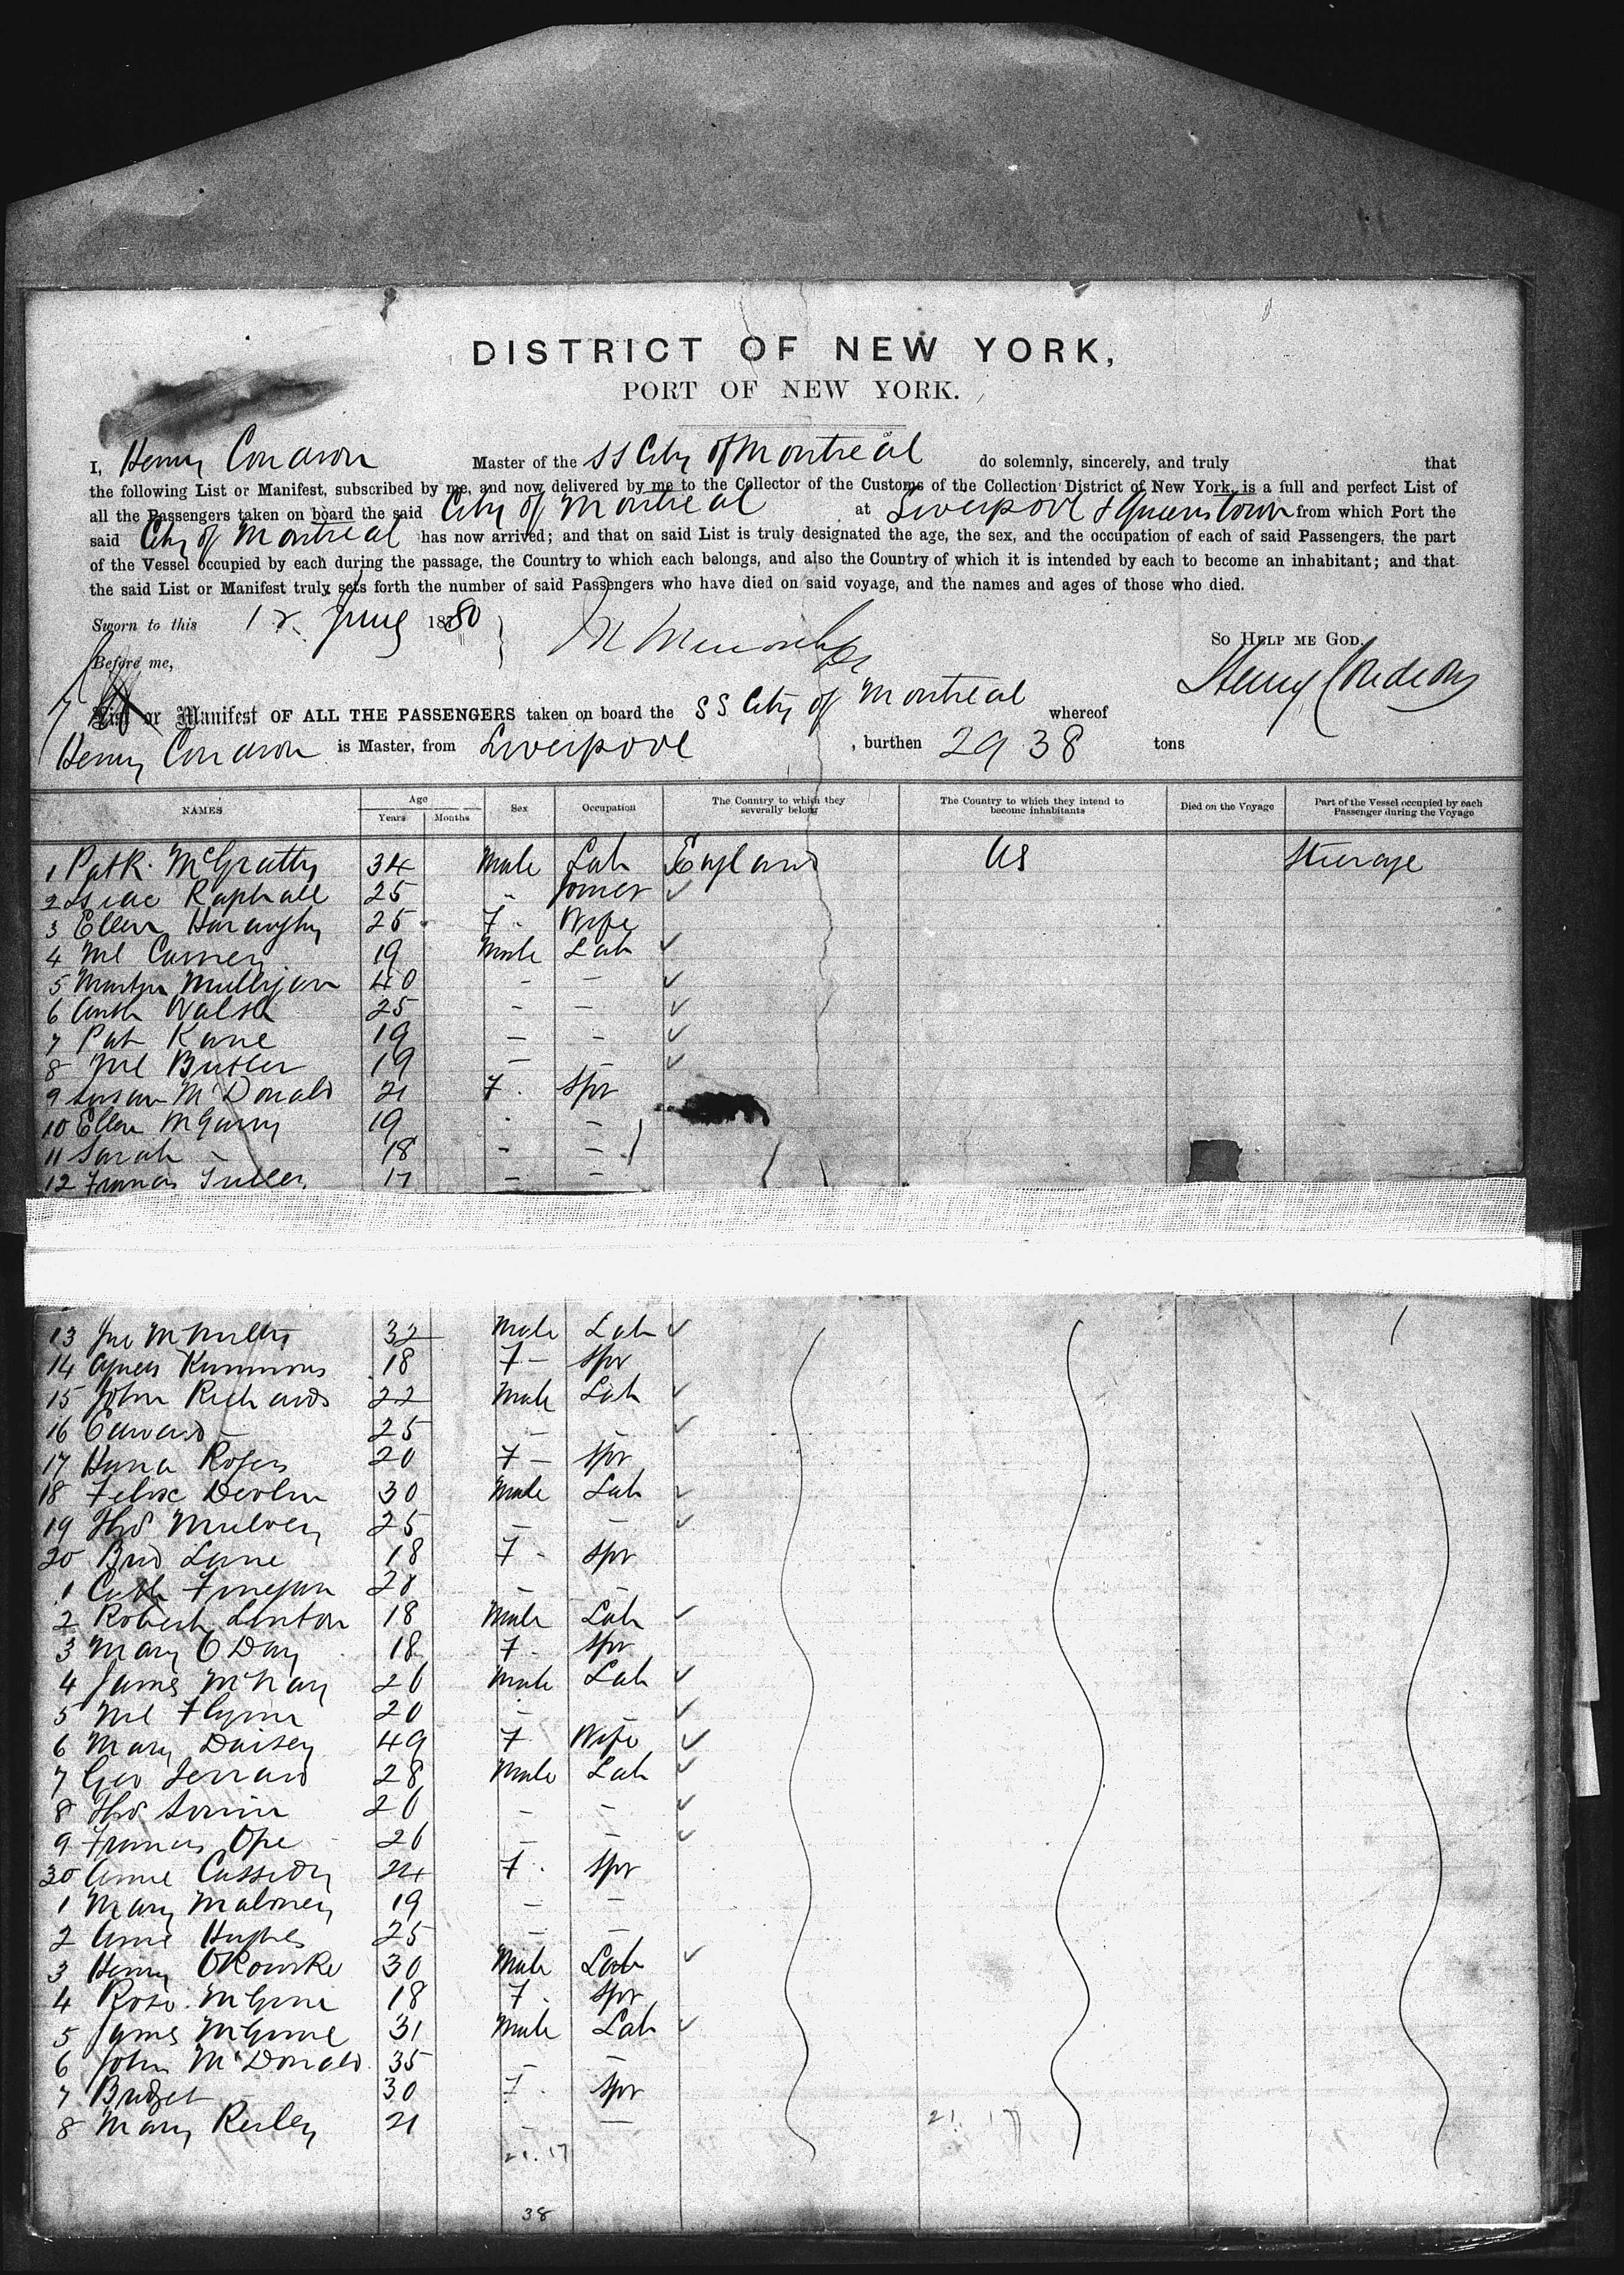 DISTRICT OF NEW YORK,
PORT OF NEW YORK.
I, Henry Condron Master of the SS City of Montreal do solemnly, sincerely, and truly that
the following List or Manifest, subscribed by me, and now delivered by me to the Collector of the Customs of the Collection District of New York, is a full and perfect List of
all the Passengers taken on board the said City of Montreal at Liverpool & Queenstown from which Port the
said City of Montreal has now arrived; and that on said List is truly designated the age, the sex, and the occupation of each of said Passengers, the part
of the Vessel occupied by each during the passage, the Country to which each belongs, and also the Country of which it is intended by each to become an inhabitant; and that
the said List or Manifest truly sets forth the number of said Passengers who have died on said voyage, and the names and ages of those who died.
Sworn to this 12 June 1880
So Help me God.
Before me,
Henry Condron
List or Manifest OF ALL THE PASSENGERS taken on board the SS. City of Montreal whereof
Henry Condron is Master, from Liverpool, burthen 2938 tons
NAMES Age Years Months Sex Occupation The Country to which they severally belong The Country to which they intend to become inhabitants Died on the Voyage Part of the Vessel occupied by each Passenger during the Voyage
1 Patk. McGratty 34 Male Lab England US Steerage
2 Isaac Raphall 25 " Joiner ✓
3 Ellen Haraughy 25 F. Wife
4 Ml Carney 19 Male Lab ✓
5 Martin Mulligan 40 - - ✓
6 Anth Walsh 25 - - ✓
7 Pat Kane 19 - - ✓
8 Ml Butler 19 - ✓
9 Susan McDonald 21 F. Spr
10 Ellen McGarry 19 - -
11 Sarah - 18 - -
12 Francis 17 - -
13 Jno McNulty 32 Male Lab ✓
14 Agnes Kimmons 18 F - Spr
15 John Richards 22 Male Lab ✓
16 Edward - 25 - - ✓
17 Hana Rogers 20 F - Spr
18 Felix Devlin 30 Male Lab ✓
19 Thos Mulvey 25 - - ✓
20 Brid Lane 18 F - Spr
1 Cath Finegan 28 - -
2 Robert Linton 18 Male Lab ✓
3 Mary O Day 18 F. Spr
4 James McNay 20 Male Lab ✓
5 Ml Flynn 20 - - ✓
6 Mary Daisey 49 F. Wife ✓
7 Geo Jerrard 28 Male Lab ✓
8 Thos 20 - - ✓
9 Francis Ope 26 - - ✓
30 Annie Cassidy 24 F. Spr
1 Mary Maloney 19 - -
2 Annie Hughes 25 - -
3 Henry ORourke 30 Male Lab ✓
4 Rose McGinn 18 F. Spr
5 James McGinne 31 Male Lab ✓
6 John McDonald 35 - -
7 Bridget - 30 F. Spr
8 Mary Reiley 21 - -
21. 17
21. 17
38